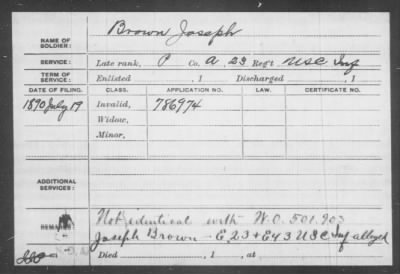 NAME OF SOLDIER: Brown Joseph
SERVICE: Late rank, P Co. A 23 Reg't USC Inf
TERM OF SERVICE: Enlisted , 1 Discharged , 1
DATE OF FILING. CLASS. APPLICATION NO. LAW. CERTIFICATE NO.
1890 July 19 Invalid, 786974
Widow,
Minor,
ADDITIONAL SERVICES:
Not identical with W.O. 501.903
REMARKS: Joseph Brown - E 23 + E 43 USC Inf alleged
Died , 1 , at